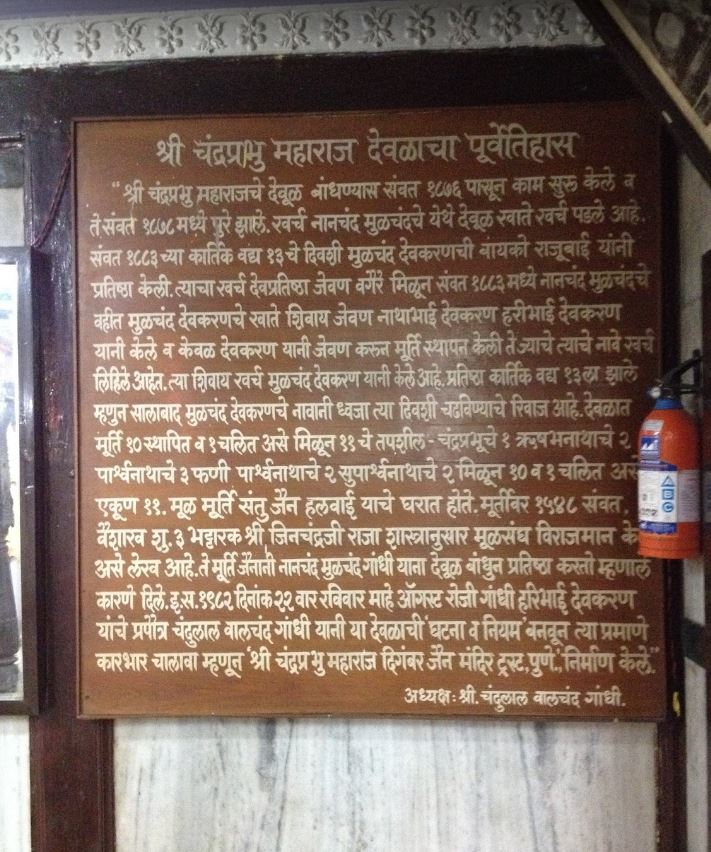 श्री चंद्रप्रभु महाराज देवळाचा पूर्वेतिहास
"श्री चंद्रप्रभु महाराजचे देवूळ बांधण्यास संवत १८७६ पासून काम सुरू केले व
ते संवत १८७८ मध्ये पुरे झाले. खर्च नानचंद मुळचंदचे येथे देवूळ खाते खर्च पडले आहे.
संवत १८८३ च्या कार्तिक वद्य १३ चे दिवशी मुळचंद देवकरणची बायको राजूबाई यांनी
प्रतिष्ठा केली. त्याचा खर्च देवप्रतिष्ठा जेवण वगैरे मिळून संवत १८८३ मध्ये नानचंद मुळचंदचे
वहीत मुळचंद देवकरणचे खाते शिवाय जेवण नाथाभाई देवकरण हरीभाई देवकरण
यानी केले व केवळ देवकरण यानी जेवण करुन मूर्ति स्थापन केली ते ज्याचे त्याचे नावे खर्ची
लिहिले आहेत. त्या शिवाय खर्च मुळचंद देवकरण यानी केले आहे. प्रतिष्ठा कार्तिक वद्य १३ ला झाले
म्हणुन सालाबाद मुळचंद देवकरणचे नावानी ध्वजा त्या दिवशी चढविण्याचे रिवाज आहे. देवळात
मूर्ति १० स्थापित व १ चलित असे मिळून ११ चे तपशील - चंद्रप्रभूचे १ ऋषभनाथाचे २
पार्श्वनाथाचे ३ फणी पार्श्वनाथाचे २ सुपार्श्वनाथाचे २ मिळून १० व १ चलित असे
एकूण ११. मूळ मूर्ति संतु जैन हलवाई याचे घरात होते. मूर्तीवर १५४८ संवत,
वैशाख शु. ३ भट्टारक श्री जिनचंद्रजी राजा शास्त्रानुसार मूळसंघ विराजमान के
असे लेख आहे. ते मूर्ति जैनानी नानचंद मुळचंद गांधी याना देवूळ बांधुन प्रतिष्ठा करतो म्हणाले
कारणे दिले. इ.स. १९८२ दिनांक २२ वार रविवार माहे ऑगस्ट रोजी गांधी हरिभाई देवकरण
यांचे प्रपौत्र चंदुलाल वालचंद गांधी यानी या देवळाची 'घटना व नियम' बनवून त्या प्रमाणे
कारभार चालावा म्हणून 'श्री चंद्रप्रभु महाराज दिगंबर जैन मंदिर ट्रस्ट, पुणे', निर्माण केले."
अध्यक्ष: श्री. चंदुलाल वालचंद गांधी.